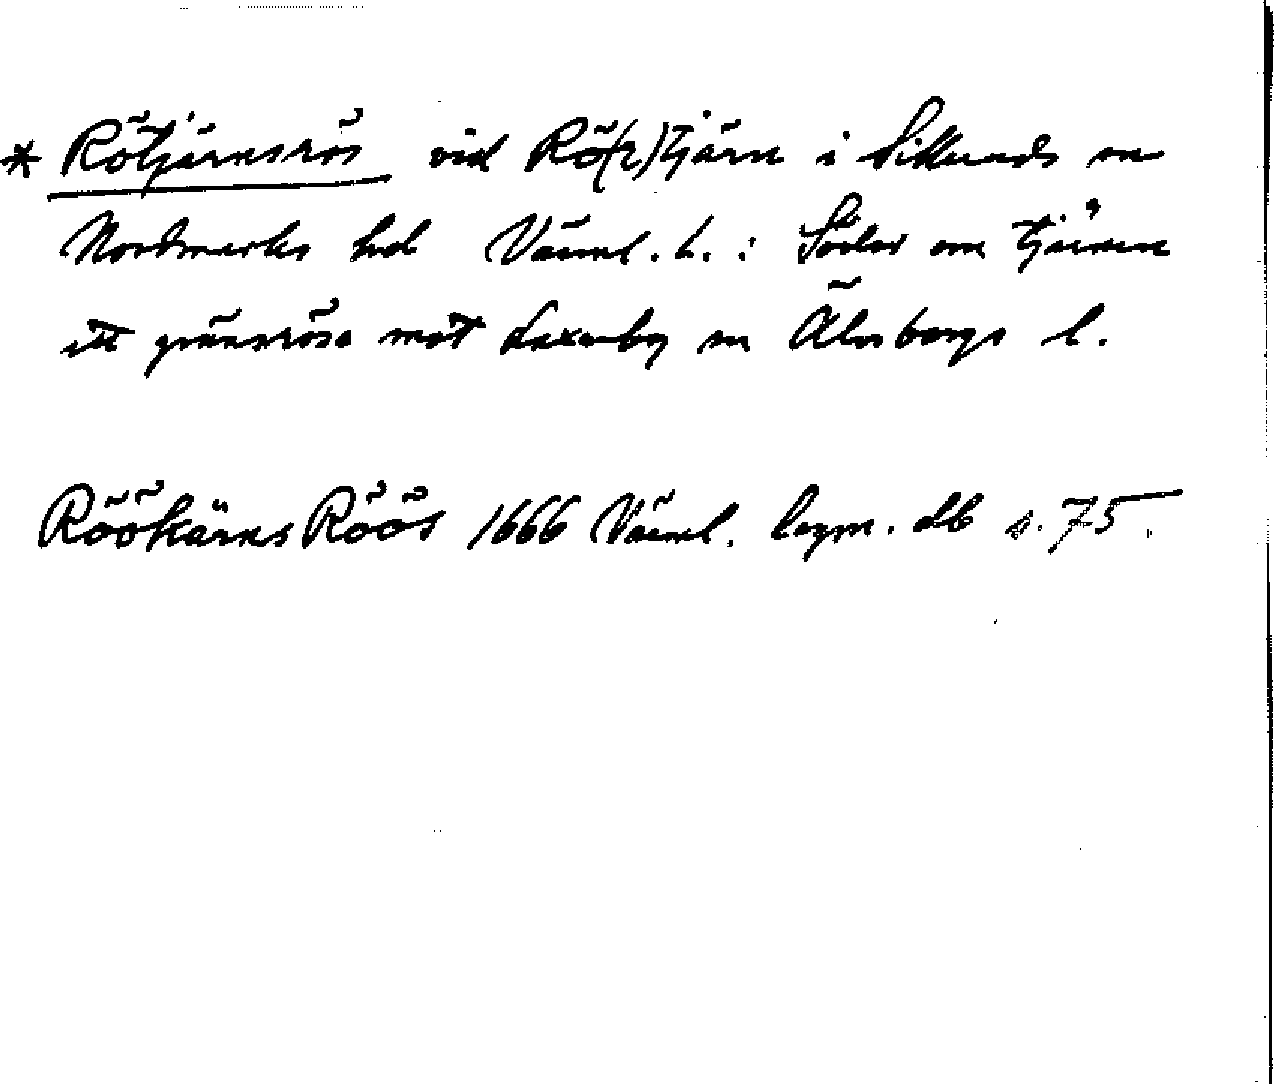 * Rötjärnsrös vid Rö(r)tjärn i Silleruds sn
Nordmarks hd Värml. l. : Söder om tjärnen
ett gränsröse mot Laxarby sn Älvsborgs l.
RöökärnsRöös 1666 Värml. lagm. db s. 75.